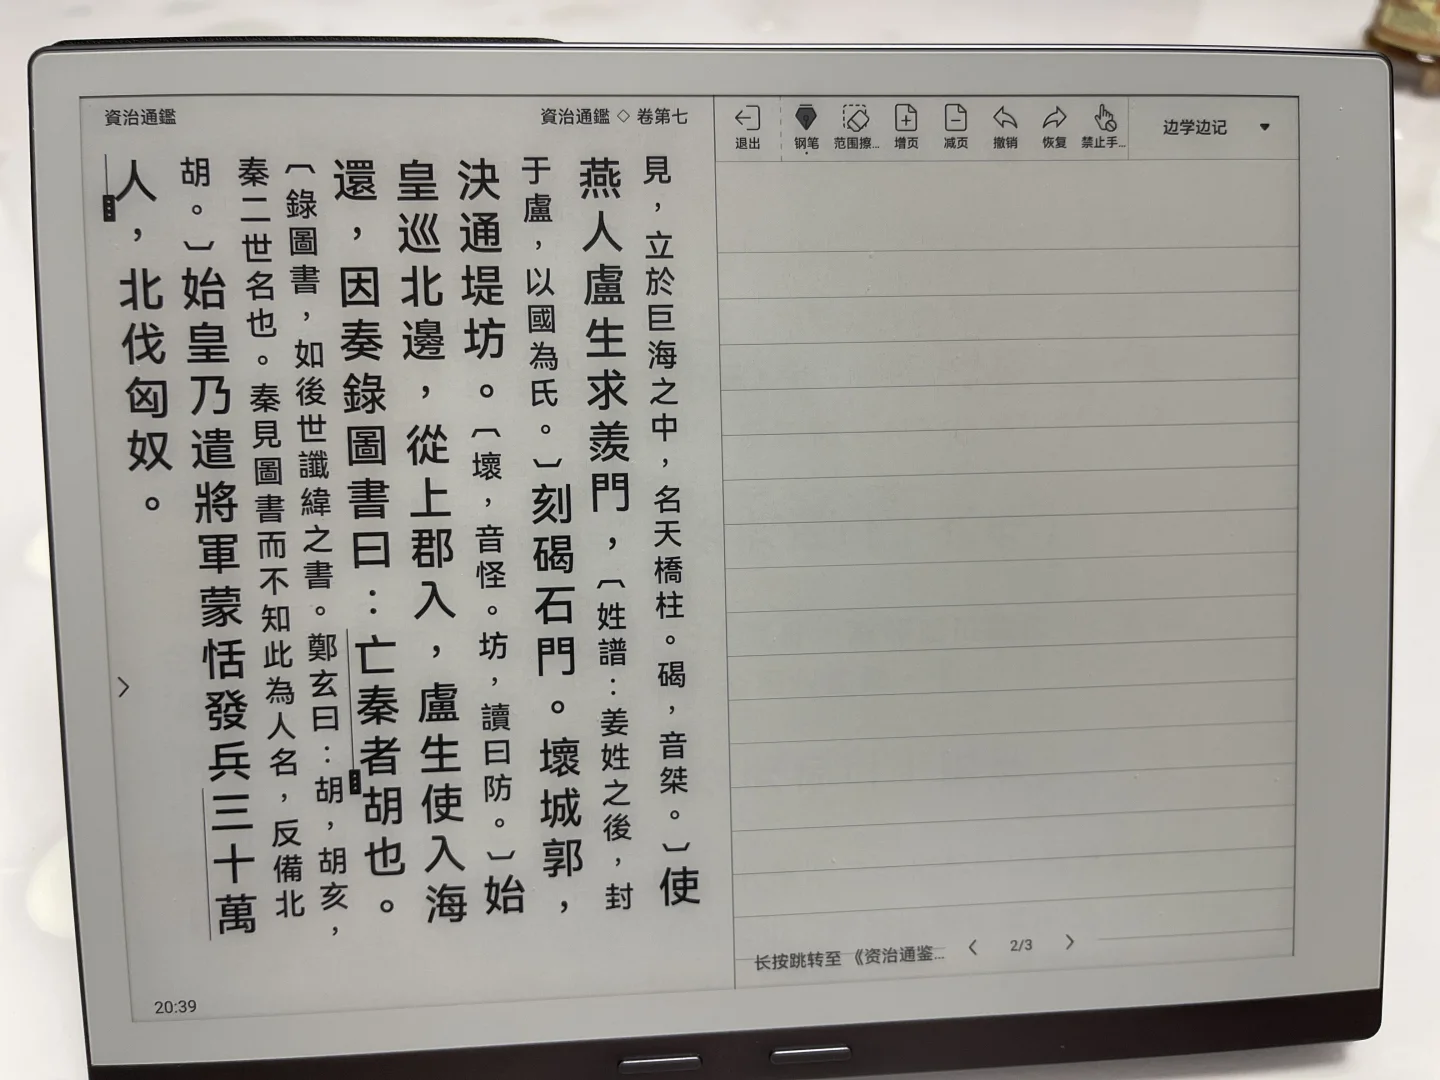 資治通鑑
資治通鑑 ◇ 卷第七
見，立於巨海之中，名天橋柱。碣，音桀。〕使
燕人盧生求羨門，〔姓譜：姜姓之後，封
于盧，以國為氏。〕刻碣石門。壞城郭，
決通堤坊。〔壞，音怪。坊，讀曰防。〕始
皇巡北邊，從上郡入，盧生使入海
還，因奏錄圖書曰：亡秦者胡也。
〔錄圖書，如後世讖緯之書。鄭玄曰：胡，胡亥，
秦二世名也。秦見圖書而不知此為人名，反備北
胡。〕始皇乃遣將軍蒙恬發兵三十萬
人，北伐匈奴。
20:39
退出
钢笔
范围擦...
增页
减页
撤销
恢复
禁止手...
边学边记
长按跳转至 《资治通鉴...
2/3